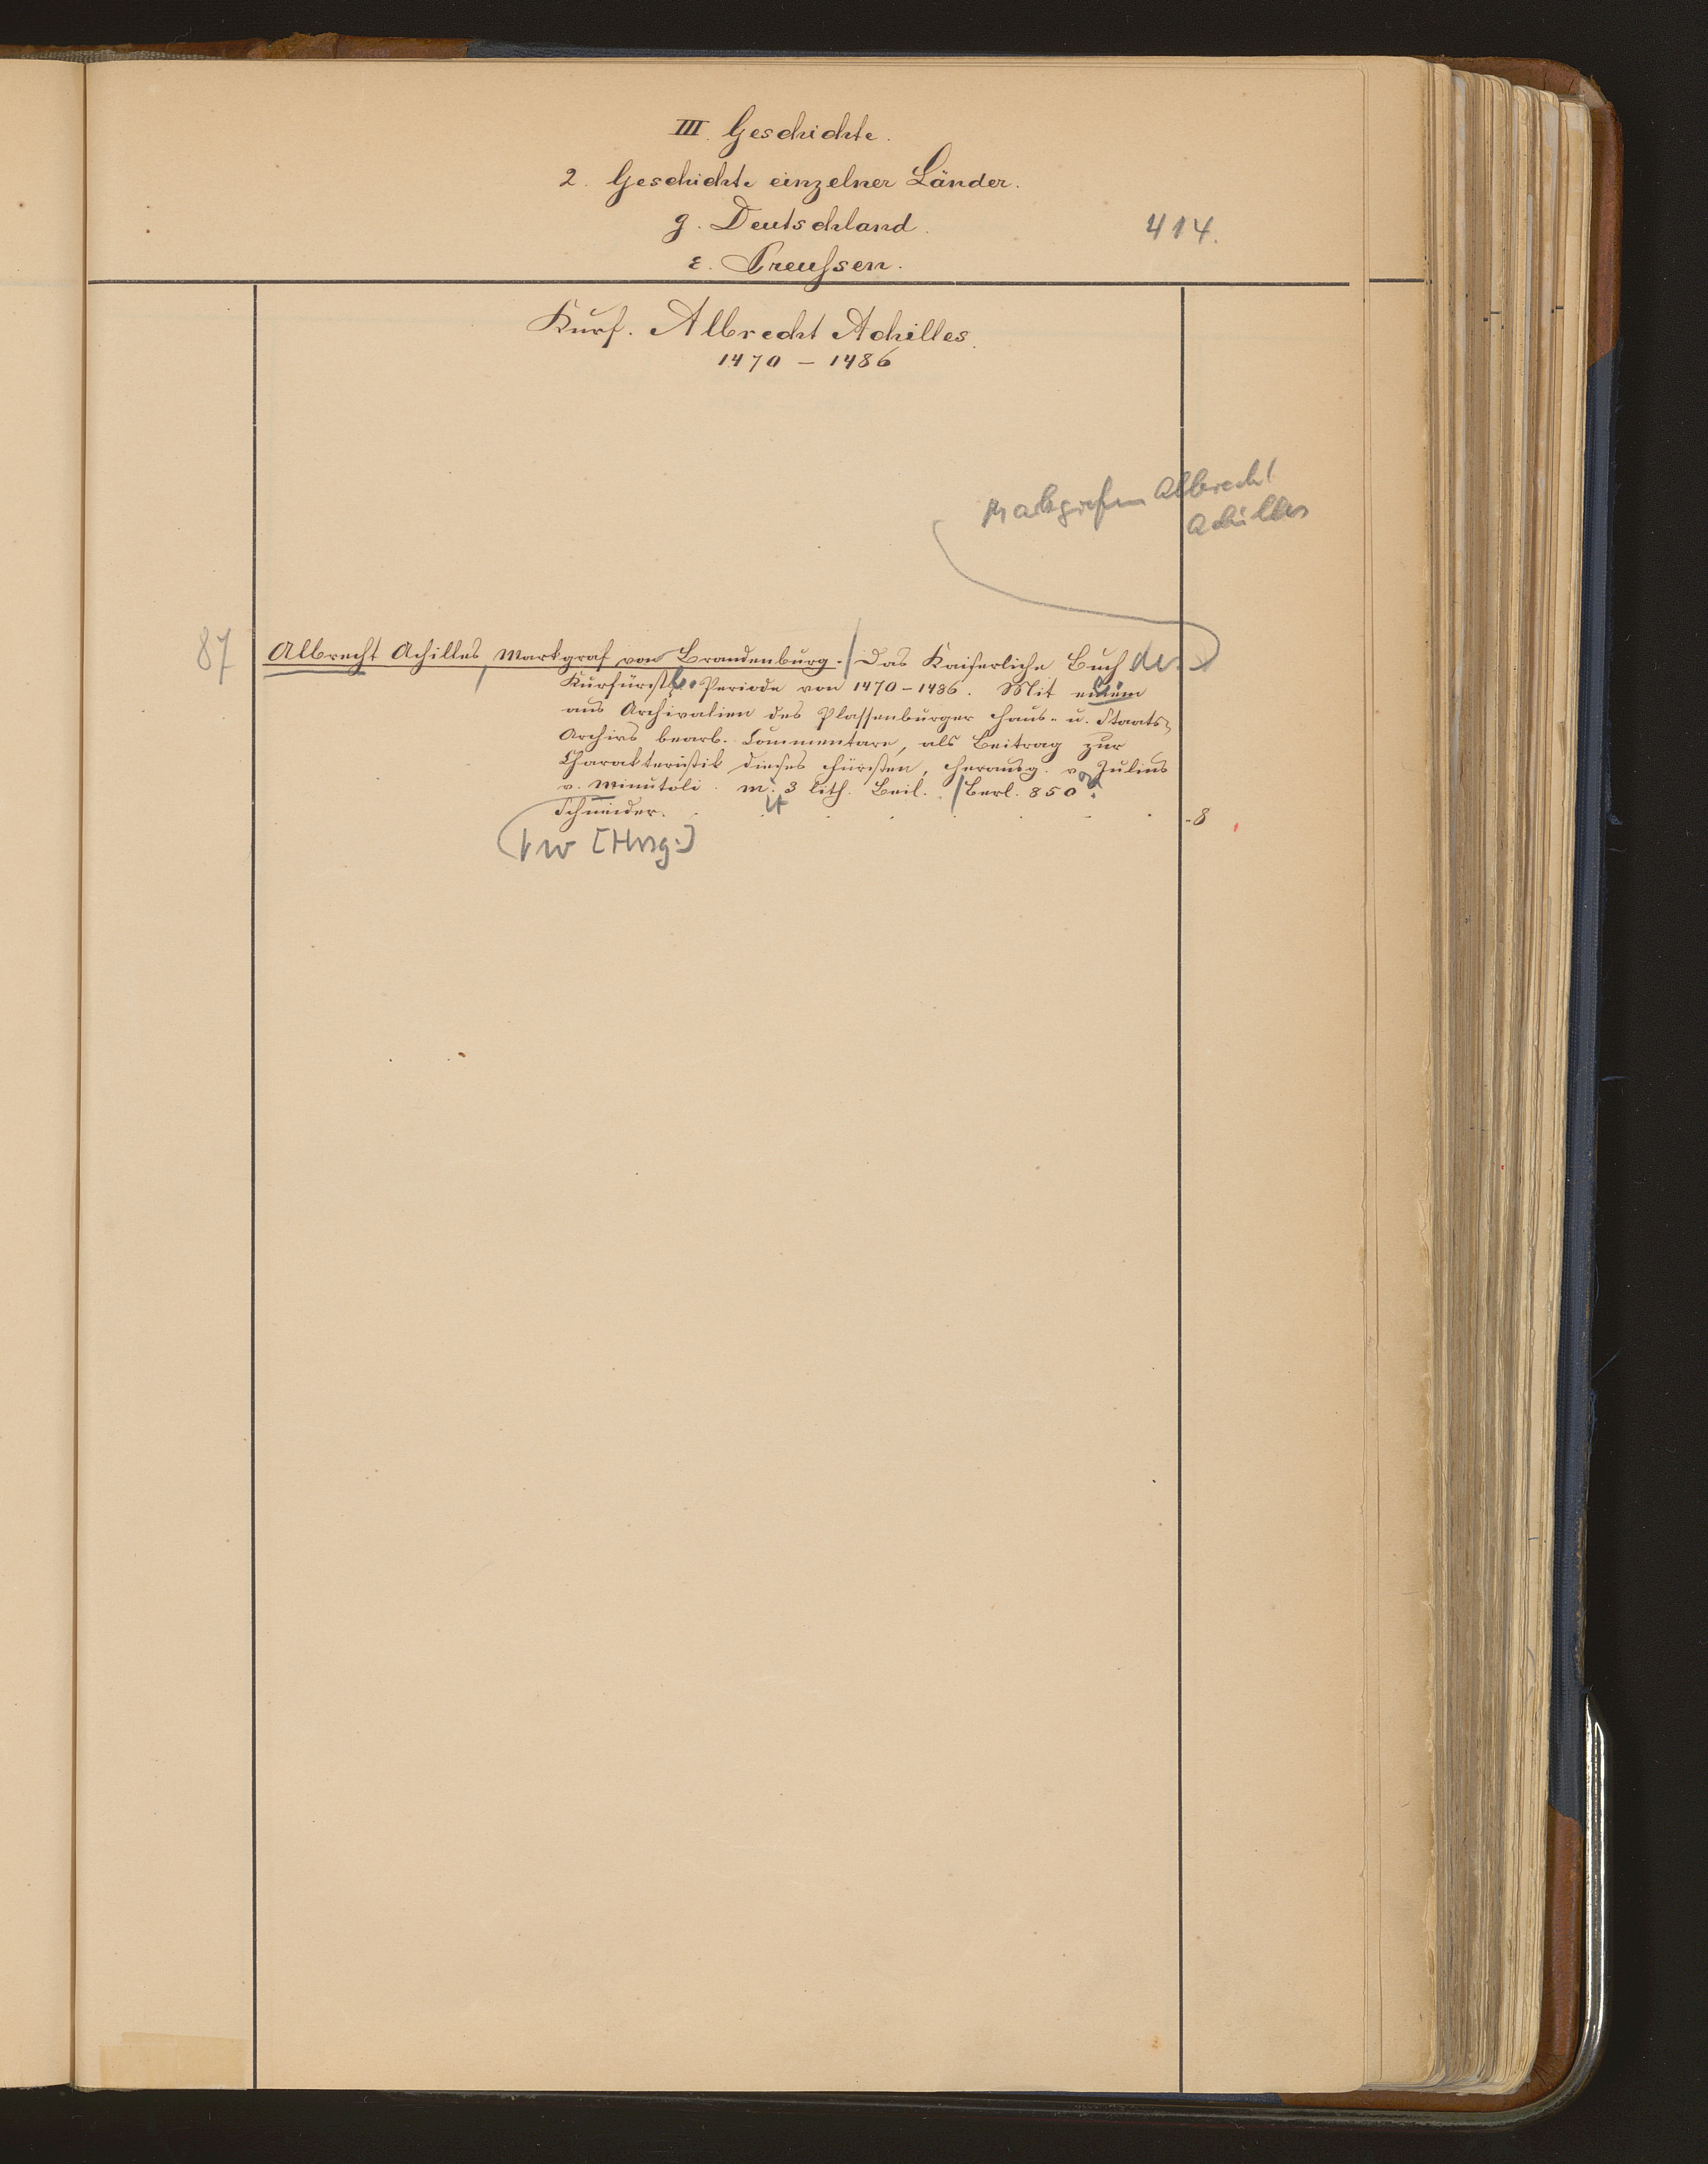 III. Geschichte.
2. Geschichte einzelner Länder.
g. Deutschland.
414.
ε. Preußen.
Kurf. Albrecht Achilles.
1470 – 1486
Markgrafen Albrecht
Achilles
87
Albrecht Achilles, Markgraf von Brandenburg. / Das Kaiserliche Buch des
Kurfürstl. Periode von 1470–1486. Mit einem
aus Archivalien des Plassenburger Haus- u. Staats-
Archivs bearb. Commentare, als Beitrag zur
Charakteristik dieses Fürsten, herausg. von Julius
v. Minutoli. mit 3 lith. Beil. / Berl. 850.
Schneider.
8
vw [Hrsg.]